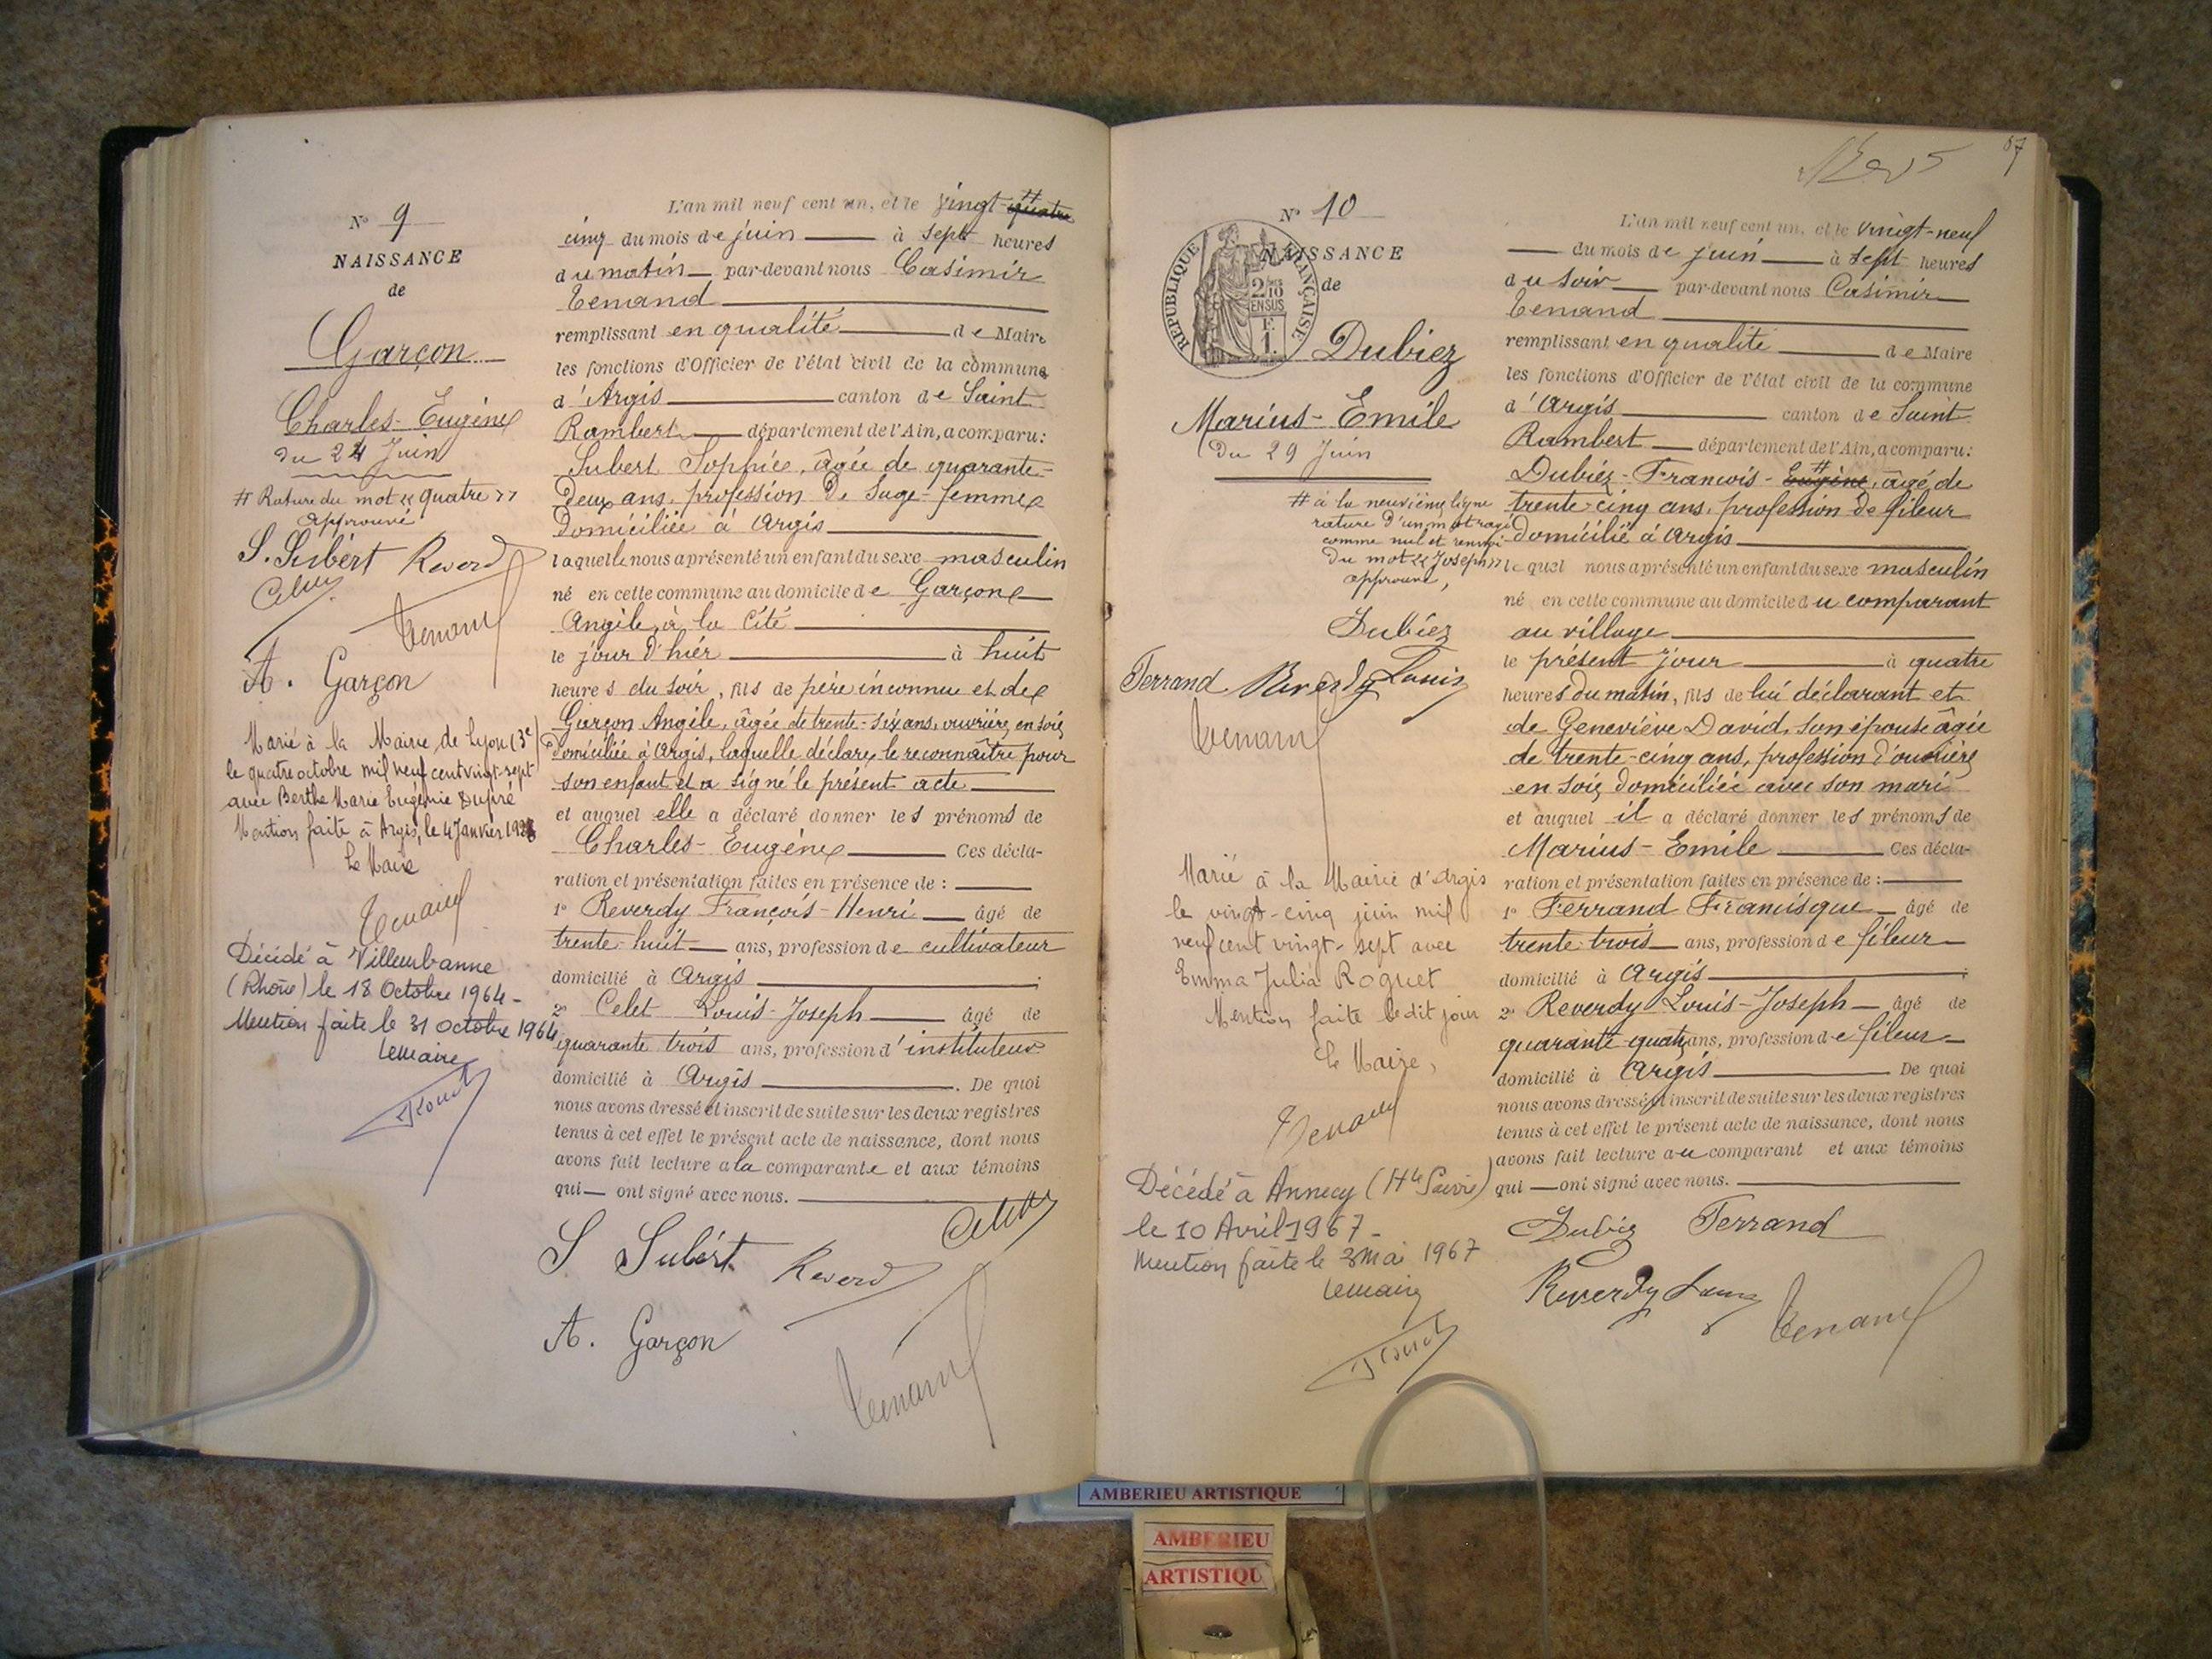 N° 9
NAISSANCE
de
Garçon
Charles-Eugène
du 24 Juin
# Rature du mot « quatre »
approuvé
S. Subért Reverdy
Celet
Tenand
A. Garçon
Marié à la Mairie de Lyon (3e)
le quatre octobre mil neuf cent vingt-sept
avec Berthe Marie Eugénie Dupré
Mention faite à Argis, le 4 Janvier 1928
Le Maire
Tenand
Décédé à Villeurbanne
(Rhône) le 18 Octobre 1964 -
Mention faite le 31 octobre 1964
Le Maire
L'an mil neuf cent un, et le vingt-quatre
cinq du mois de juin à sept heures
du matin par-devant nous Casimir
Tenand
remplissant en qualité de Maire
les fonctions d'Officier de l'état civil de la commune
d'Argis canton de Saint
Rambert département de l'Ain, a comparu:
Subert Sophie, âgée de quarante-
deux ans, profession de sage-femme
domiciliée à Argis
laquelle nous a présenté un enfant du sexe masculin
né en cette commune au domicile de Garçon
Angèle, à la Cité
le jour d'hier à huit
heures du soir, fils de père inconnu et de
Garçon Angèle, âgée de trente-six ans, ouvrière en soie
domiciliée à Argis, laquelle déclare le reconnaître pour
son enfant et a signé le présent acte
et auquel elle a déclaré donner les prénoms de
Charles-Eugène Ces décla-
ration et présentation faites en présence de :
1° Reverdy François-Henri âgé de
trente-huit ans, profession de cultivateur
domicilié à Argis ;
2° Celet Louis-Joseph âgé de
quarante trois ans, profession d'instituteur
domicilié à Argis . De quoi
nous avons dressé et inscrit de suite sur les deux registres
tenus à cet effet le présent acte de naissance, dont nous
avons fait lecture a la comparante et aux témoins
qui ont signé avec nous.
S Subért Reverdy Celet
A. Garçon
Tenand
87
N° 10
NAISSANCE
de
REPUBLIQUE FRANÇAISE
2/10 EN SUS
1 F.
Dubiez
Marius-Emile
Du 29 Juin
# à la neuvième ligne
rature d'un mot rayé
comme nul et renvoi
du mot « Joseph »
approuvé,
Dubiez
Ferrand Reverdy Louis
Tenand
Marié à la Mairie d'Argis
le vingt-cinq juin mil
neuf cent vingt-sept avec
Emma Julia Roguet
Mention faite ledit jour
Le Maire,
Tenand
Décédé à Annecy (Hte Savoie)
le 10 Avril 1967 -
Mention faite le 3 Mai 1967
Le Maire
L'an mil neuf cent un, et le vingt-neuf
du mois de juin à sept heures
du soir par-devant nous Casimir
Tenand
remplissant en qualité de Maire
les fonctions d'Officier de l'état civil de la commune
d'Argis canton de Saint
Rambert département de l'Ain, a comparu:
Dubiez-François-Eugène, âgé de
trente-cinq ans, profession de fileur
domicilié à Argis
lequel nous a présenté un enfant du sexe masculin
né en cette commune au domicile du comparant
au village
le présent jour à quatre
heures du matin, fils de lui déclarant et
de Geneviève David, son épouse âgée
de trente-cinq ans, profession d'ouvrière
en soie, domiciliée avec son mari
et auquel il a déclaré donner les prénoms de
Marius-Emile Ces décla-
ration et présentation faites en présence de :
1° Ferrand Francisque âgé de
trente-trois ans, profession de fileur
domicilié à Argis ;
2° Reverdy Louis-Joseph âgé de
quarante-quatre ans, profession de fileur
domicilié à Argis De quoi
nous avons dressé et inscrit de suite sur les deux registres
tenus à cet effet le présent acte de naissance, dont nous
avons fait lecture au comparant et aux témoins
qui ont signé avec nous.
Dubiez Ferrand
Reverdy Louis Tenand
AMBERIEU ARTISTIQUE
AMBERIEU
ARTISTIQU